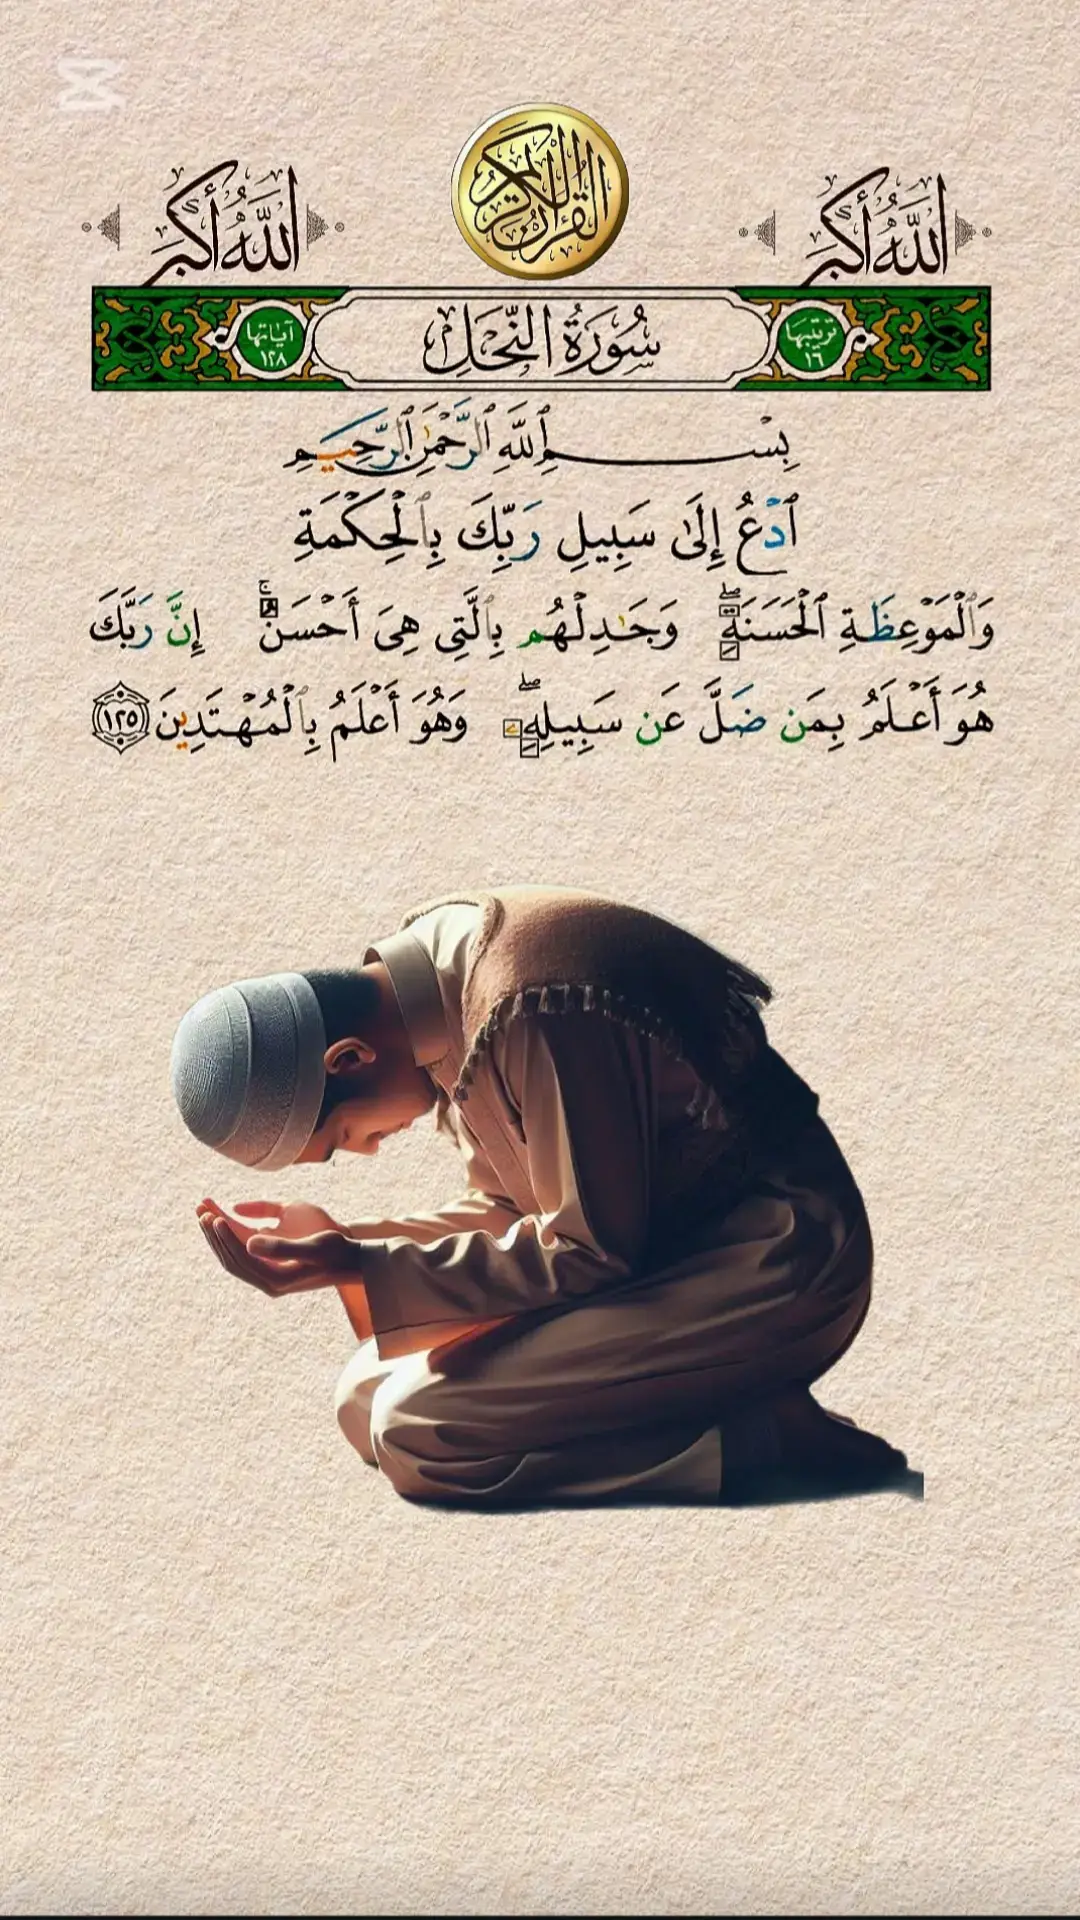 القرآن الكريم
الله أكبر
الله أكبر
ترتيبها ١٦
سُورَةُ النَّحْلِ
آياتها ١٢٨
بِسْمِ ٱللَّهِ ٱلرَّحْمَٰنِ ٱلرَّحِيمِ
ٱدْعُ إِلَىٰ سَبِيلِ رَبِّكَ بِٱلْحِكْمَةِ
وَٱلْمَوْعِظَةِ ٱلْحَسَنَةِۖ وَجَٰدِلْهُم بِٱلَّتِى هِىَ أَحْسَنُۚ إِنَّ رَبَّكَ
هُوَ أَعْلَمُ بِمَن ضَلَّ عَن سَبِيلِهِۦۖ وَهُوَ أَعْلَمُ بِٱلْمُهْتَدِينَ ١٢٥